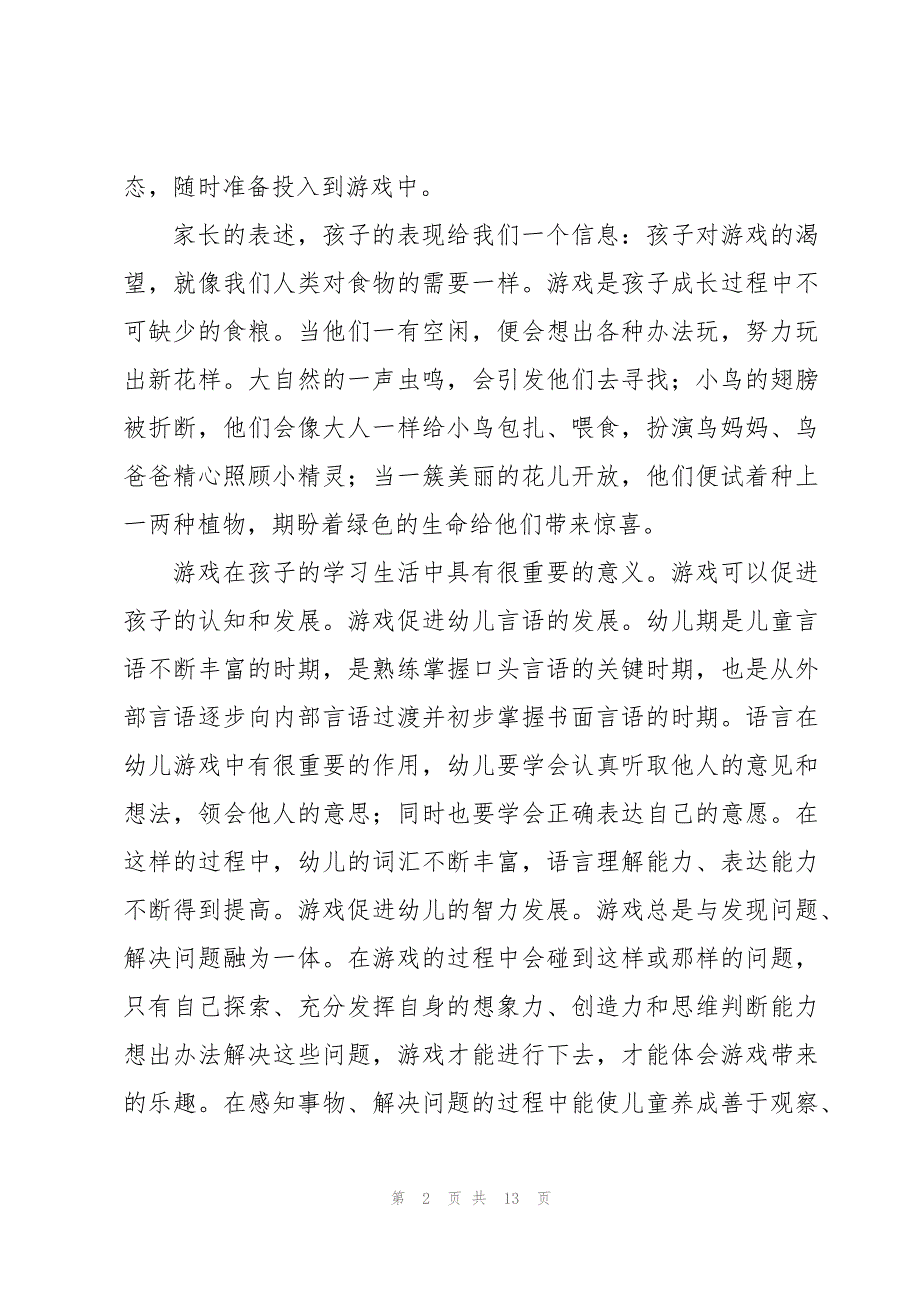 态，随时准备投入到游戏中。
家长的表述，孩子的表现给我们一个信息：孩子对游戏的渴
望，就像我们人类对食物的需要一样。游戏是孩子成长过程中不
可缺少的食粮。当他们一有空闲，便会想出各种办法玩，努力玩
出新花样。大自然的一声虫鸣，会引发他们去寻找；小鸟的翅膀
被折断，他们会像大人一样给小鸟包扎、喂食，扮演鸟妈妈、鸟
爸爸精心照顾小精灵；当一簇美丽的花儿开放，他们便试着种上
一两种植物，期盼着绿色的生命给他们带来惊喜。
游戏在孩子的学习生活中具有很重要的意义。游戏可以促进
孩子的认知和发展。游戏促进幼儿言语的发展。幼儿期是儿童言
语不断丰富的时期，是熟练掌握口头言语的关键时期，也是从外
部言语逐步向内部言语过渡并初步掌握书面言语的时期。语言在
幼儿游戏中有很重要的作用，幼儿要学会认真听取他人的意见和
想法，领会他人的意思；同时也要学会正确表达自己的意愿。在
这样的过程中，幼儿的词汇不断丰富，语言理解能力、表达能力
不断得到提高。游戏促进幼儿的智力发展。游戏总是与发现问题、
解决问题融为一体。在游戏的过程中会碰到这样或那样的问题，
只有自己探索、充分发挥自身的想象力、创造力和思维判断能力
想出办法解决这些问题，游戏才能进行下去，才能体会游戏带来
的乐趣。在感知事物、解决问题的过程中能使儿童养成善于观察、
第 2 页 共 13 页